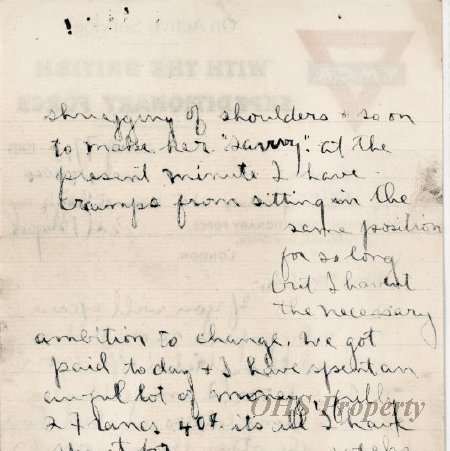 shrugging of shoulders + so on
to make her "savvy" at the
present minute I have
cramps from sitting in the
same position
for so long
but I havent
the necessary
ambition to change. We got
paid to day + I have spent an
awful lot of money,
2 francs 40¢ its all I have
OHS Property
WITH THE BRITISH
EXPEDITIONARY FORCE
LONDON